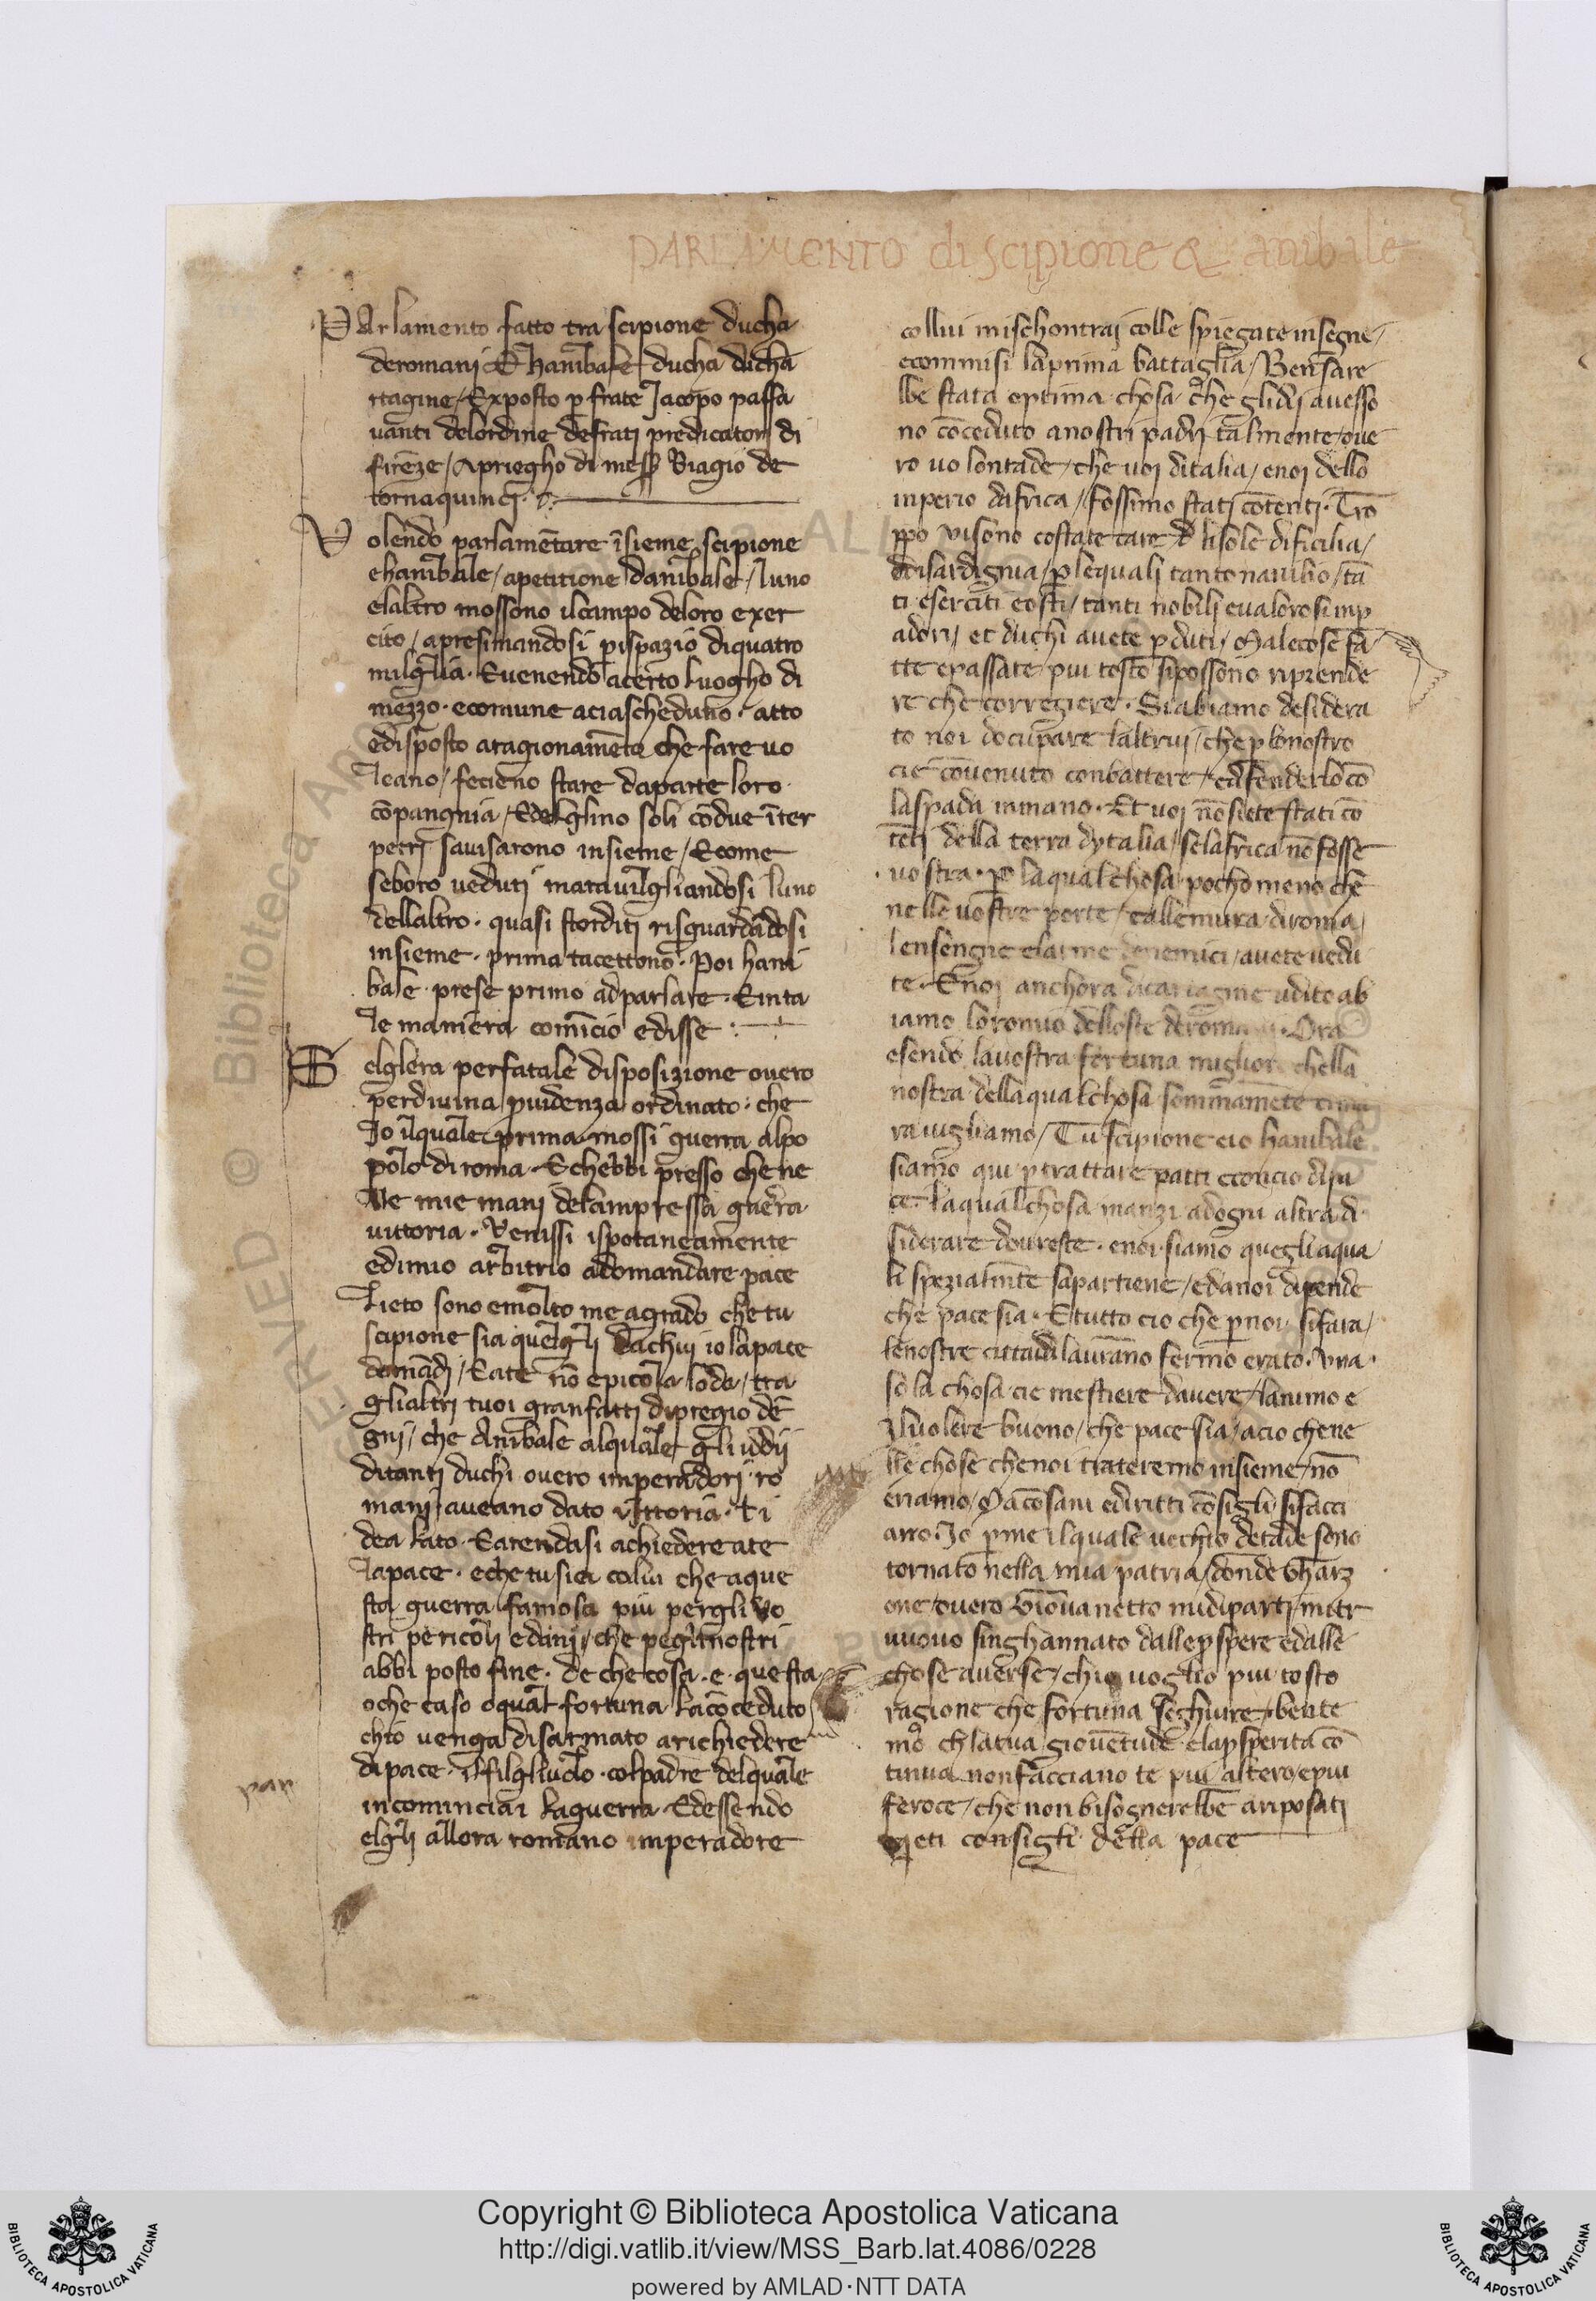 PARLAMENTO di scipione & anibale
PArlamento fatto tra scipione ducha
deromanj & hanibale ducha dicha
rtagine / Exposto p frate Jacopo passa
uanti delordine defratj predicatorj di
firēze / Apriegho di mess Biagio de
tornaquincj
Volendo parlamētare īsieme scipione
ehanibale / apetitione danibale / luno
elaltro mossono ilcampo deloro exer
cito / apresimandosi p ispazio diquatro
milglia . Euenendo acerto luogho di
mezzo . ecomune aciascheduno . atto
edisposto aragionamēto che fare uo
leano / feciēno stare daparte loro
cōpangnia / Edelglino soli cōdue īter
petrj sauisarono insieme / Ecome
seboro uedutj marauilgliandosi luno
dellaltro . quasi storditj risguardādosi
insieme . prima tacettono . Poi hani
bale prese primo adparlare . Einta
le maniera comīcio edisse
Selglera perfatale disposizione ouero
perdiuina puidenza ordinato . che
Jo ilquale prima mossi guerra alpo
polo diroma . Echebbi presso che ne
lle mie manj delampressa guerra
uittoria . Venissi ispotaneamente
edimio arbitrio adomandare pace
Lieto sono emolto me agrado che tu
scipione sia quelglj dachuj io lapace
domādj / Eate nō epicola loda / tra
glialtrj tuoi granfattj dipregio dē
gnj / che Anibale alquale gliuddij
ditantj duchi ouero imperadorj ro
manj aueano dato uittoria . ti
dea lato . Earendasi achiedere ate
lapace . eche tu sia colui che aque
sta guerra famosa piu pergli uo
stri pericolj edanj / che peglinostri
abbi posto fine . de che cosa . e . questa
oche caso oqual fortuna lacōceduto
chio uenga disarmato arichiedere
dipace . ilfilgliuolo . colpadre delquale
incominciai laguerra . Edessendo
elglj allora romano imperadore
pan
collui mischontraj colle spiegate insegne /
ecommisi laprima battaglia / Ben sare
bbe stata optima chosa che glidij auesso
no cōceduto anostri padrj talmente / oue
ro uolontade / che uoj ditalia / enoj dello
inperio dafrica / fossimo statj cōtentj . Tro
ppo uisono costate care lisole dificilia /
edisardignia / p lequalj tanto nauilio / tā
ti eserciti eosti / tanti nobilj eualorosi imp
adorj / et duchi auete pduti / Malecose fa
tte epassate piu tosto sipossono riprende
re che corregiere . Si abiamo desidera
to noi docupare laltruj / che p lonostro
cie conuenuto conbattere / edifenderlo cō
laspada inmano . Et uoj nō siete stati cō
tētj della terra dytalia / selafrica nō fosse
uostra . p laqualchosa pocho meno che
nelle uostre porte / eallemura diroma /
lensengne elarme denemici / auete uedu
te . Enoj anchora dicartagine udito ab
iamo loromio delloste deromanj . Ora
esendo lauostra fortuna miglior chella
nostra dellaqualchosa sommamēte cima
rauigliamo / Tu scipione eio hanibale
siamo qui p trattare patti econcio dipa
ce . laqualchosa inanzi adogni altra di
siderare doureste . enoi siamo quegli aqua
li spezialmēte sapartiene / edanoi dipende
che pace sia . Etutto cio che p noi sifara /
lenostre cittadi laurāno fermo erato . Una
sola chosa cie mestiere dauere / lanimo e
iluolere buono / che pace sia / acio chene
lle chose chenoi trateremo insieme / nō
eriamo / Macōsani ediritti cōsigli sifacci
ano . Jo p me ilquale uechio detade sono
tornato nella mia patria / donde gharz
one / ouero Giouanetto midipartj / intr
uuouo singhannato dallepspere edalle
chose auerse / chio uoglio piu tosto
ragione che fortuna seghuire / bente
mo chlatua giouētude elapsperita cō
tinua nonfacciano te piu altero / epiu
feroce / che non bisognerebbe ariposatj
eti consigli della pace
Copyright © Biblioteca Apostolica Vaticana
http://digi.vatlib.it/view/MSS_Barb.lat.4086/0228
powered by AMLAD·NTT DATA
BIBLIOTECA APOSTOLICA VATICANA
BIBLIOTECA APOSTOLICA VATICANA